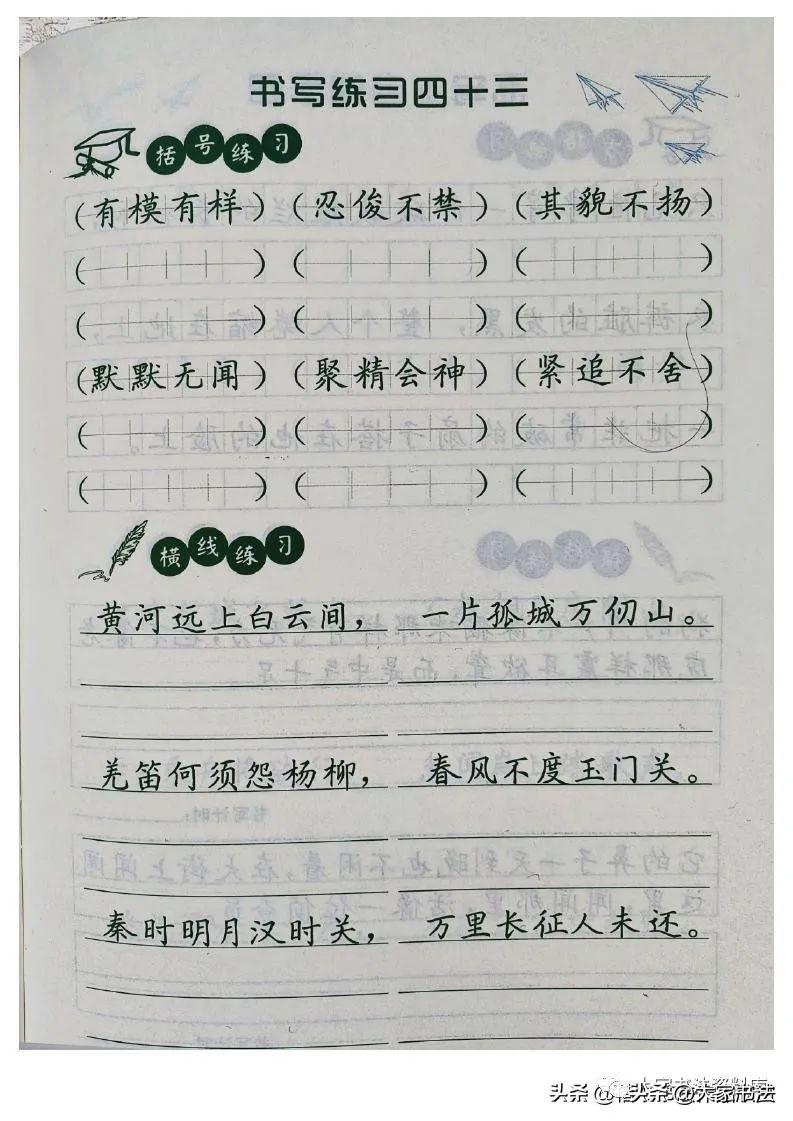 书写练习四十三
括号练习
(有模有样) (忍俊不禁) (其貌不扬)
( ) ( ) ( )
( ) ( ) ( )
(默默无闻) (聚精会神) (紧追不舍)
( ) ( ) ( )
( ) ( ) ( )
横线练习
黄河远上白云间， 一片孤城万仞山。
羌笛何须怨杨柳， 春风不度玉门关。
秦时明月汉时关， 万里长征人未还。
头条@大家书法